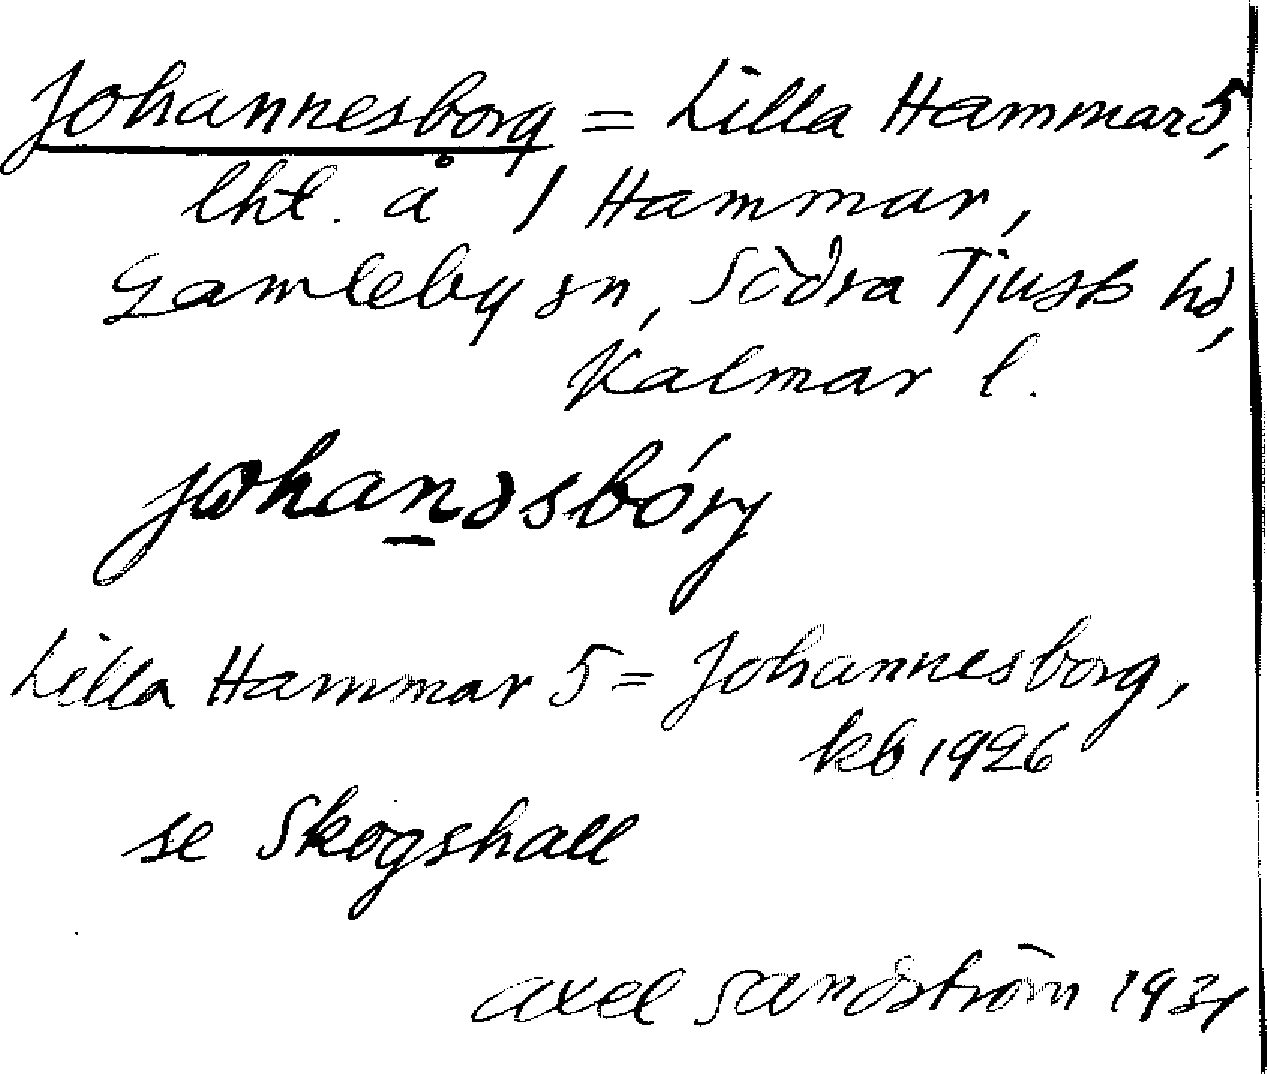 Johannesborg = Lilla Hammar 5,
lht. å 1 Hammar,
Gamleby sn, Södra Tjust hd,
Kalmar l.
Lilla Hammar 5 = Johannesborg,
kb 1926
se Skogshall
Axel Sandström 1931